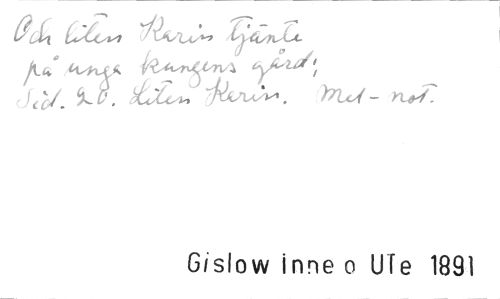 Och liten Karin tjänte
på unga kungens gård;
Sid. 20. Liten Karin. Mel-not.
Gislow Inne o Ute 1891